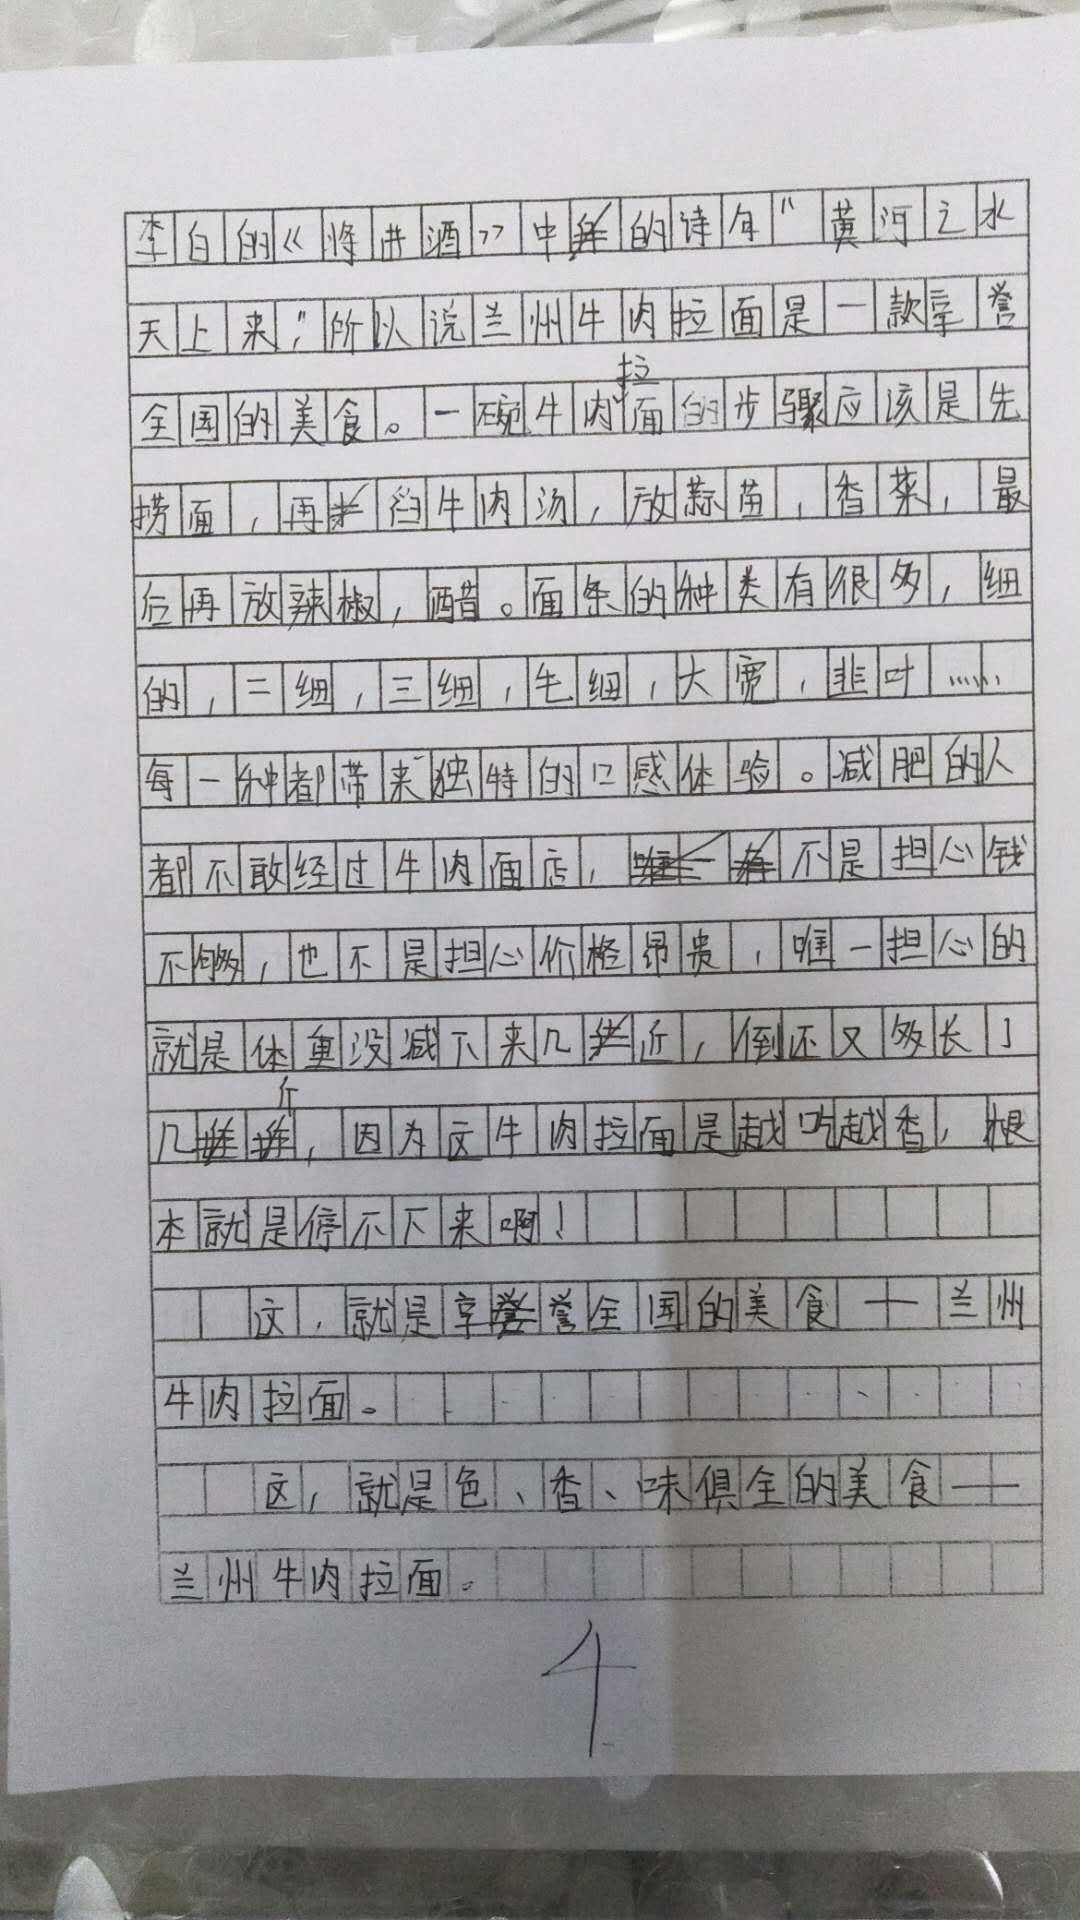 李白的《将进酒》中的诗句“黄河之水
天上来”，所以说兰州牛肉拉面是一款享誉
全国的美食。一碗牛肉拉面的步骤应该是先
捞面，再舀牛肉汤，放蒜苗，香菜，最
后再放辣椒，醋。面条的种类有很多，细
的，二细，三细，毛细，大宽，韭叶……
每一种都带来独特的口感体验。减肥的人
都不敢经过牛肉面店，不是担心钱
不够，也不是担心价格昂贵，唯一担心的
就是体重没减下来几近，倒还又多长了
几斤，因为这牛肉拉面是越吃越香，根
本就是停不下来啊！
这，就是享誉全国的美食——兰州
牛肉拉面。
这，就是色、香、味俱全的美食——
兰州牛肉拉面。
4